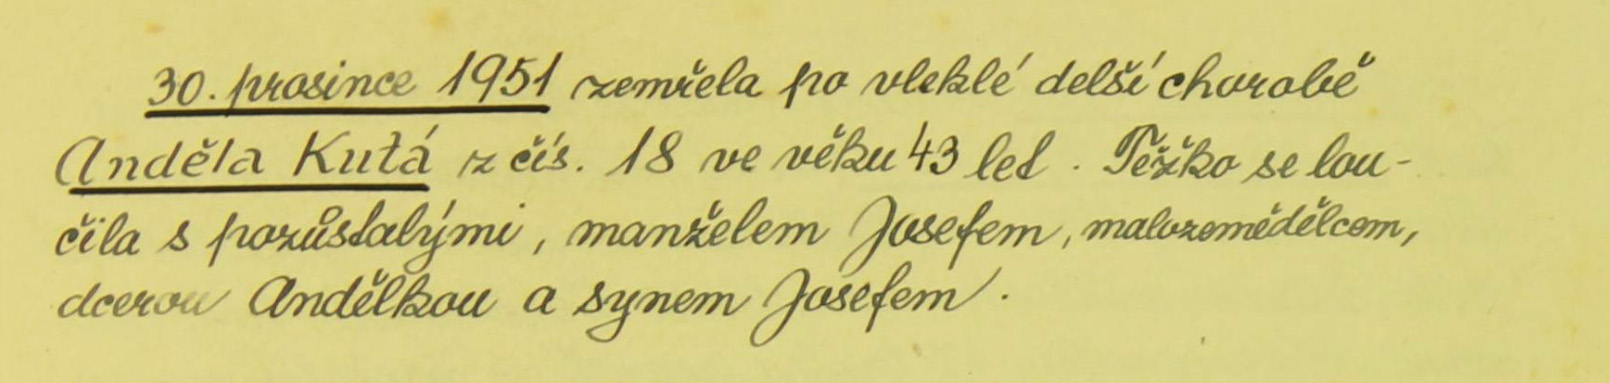 30. prosince 1951 zemřela po vleklé delší chorobě
Anděla Kutá z čís. 18 ve věku 43 let. Těžko se lou-
čila s pozůstalými, manželem Josefem, malozemědělcem,
dcerou Andělkou a synem Josefem.